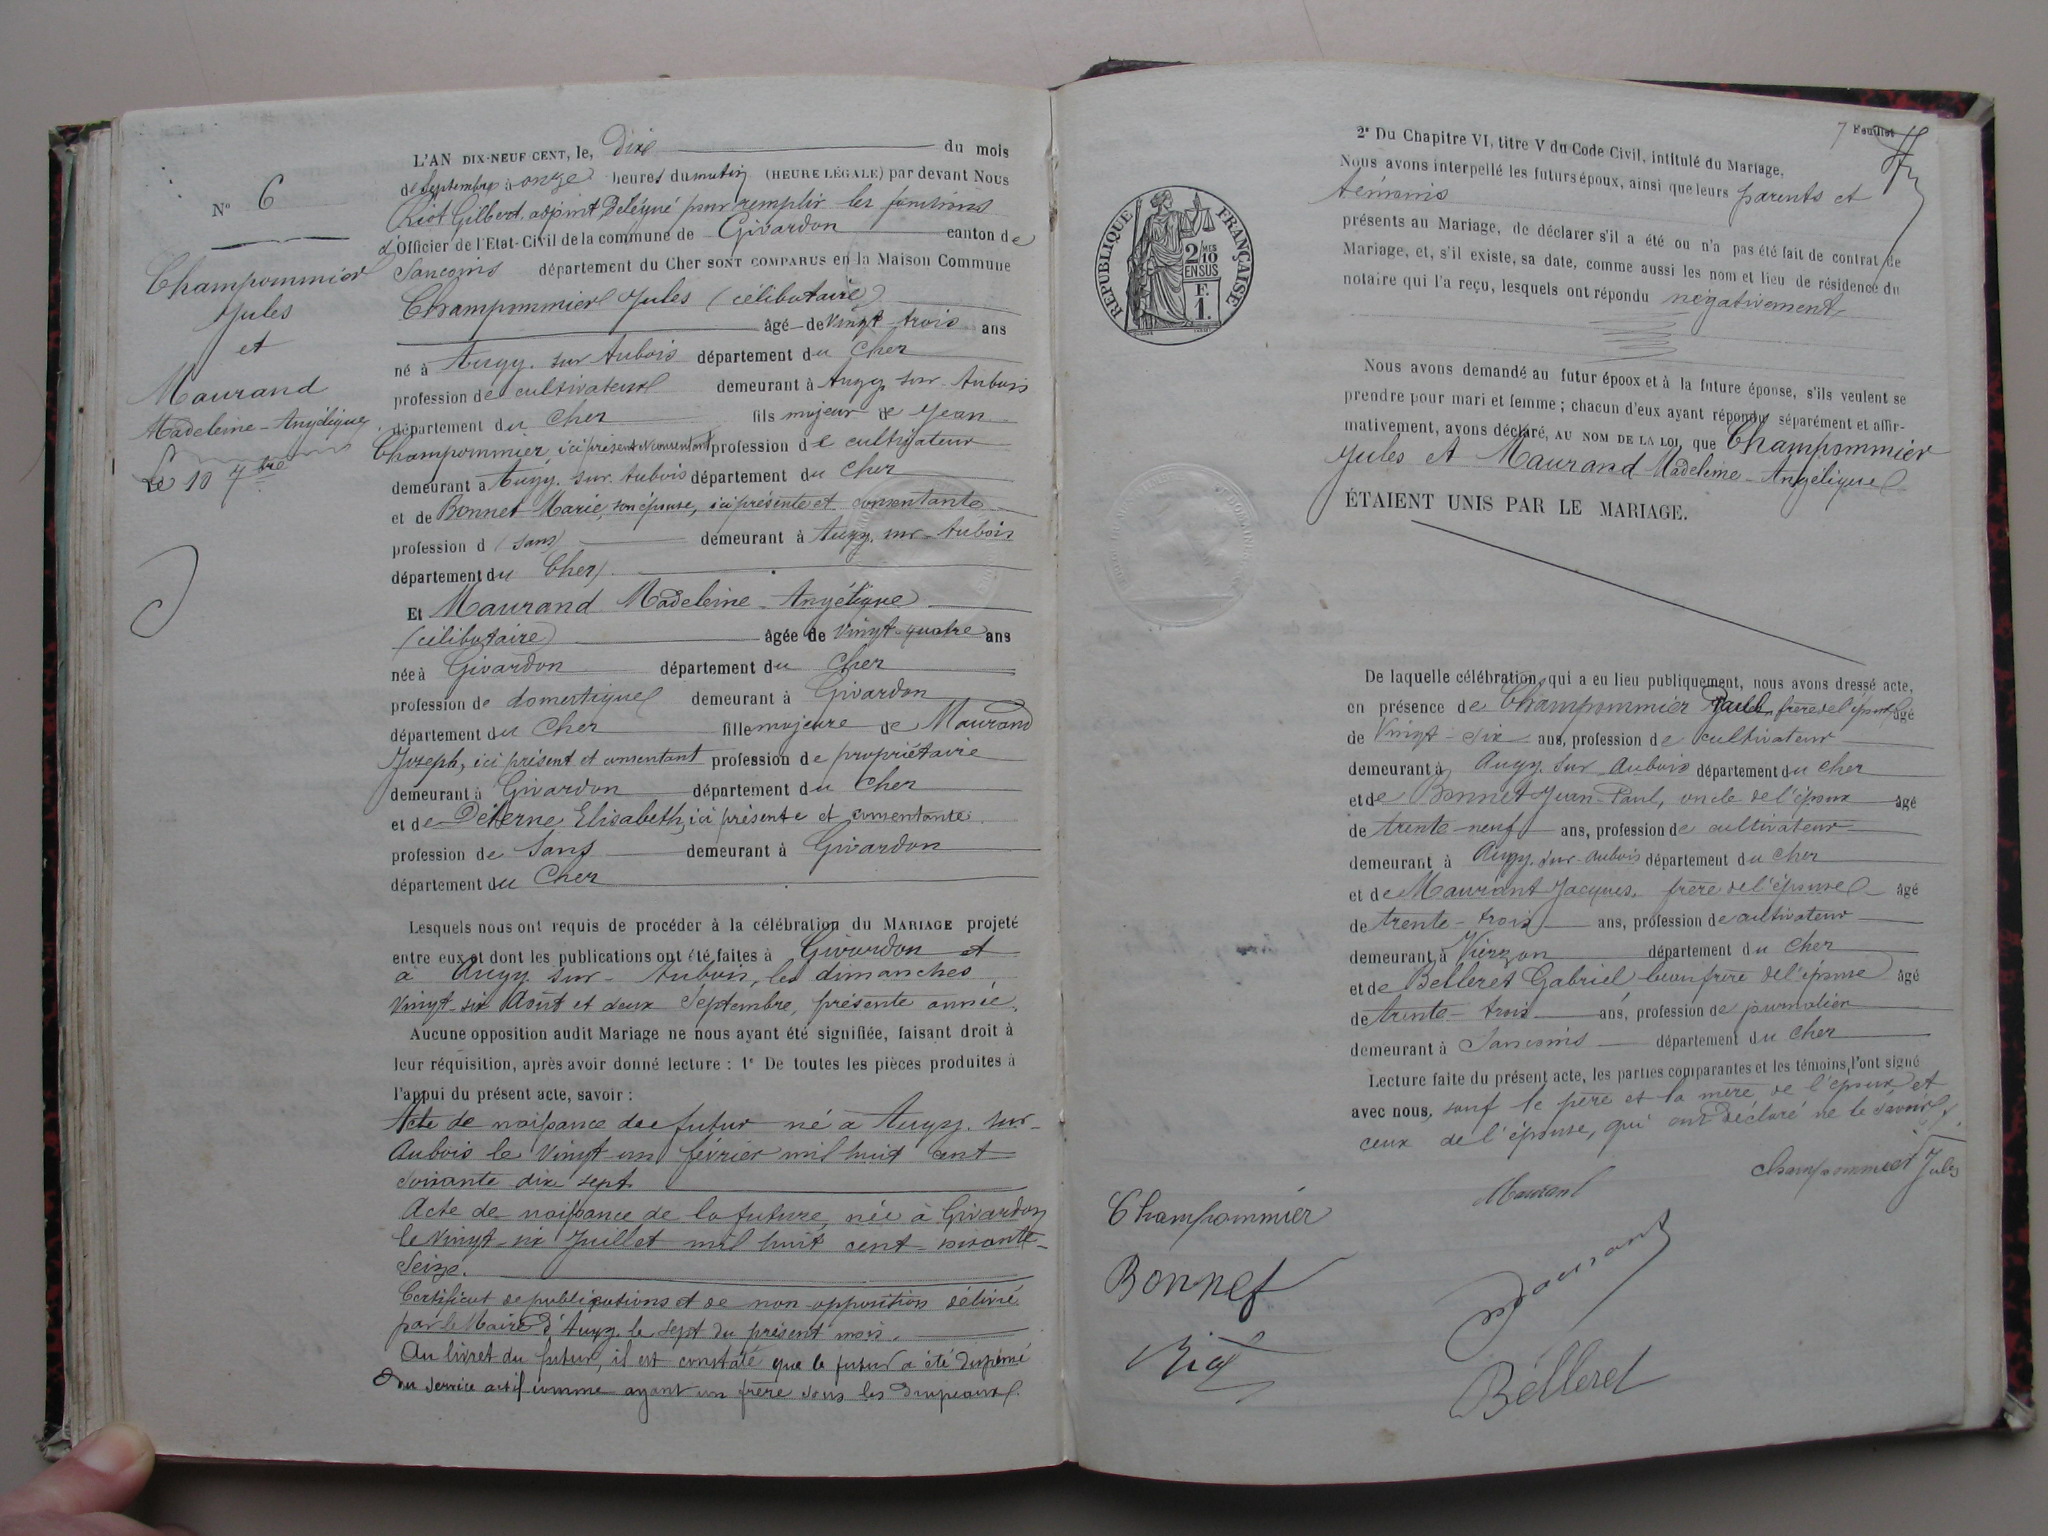 N° 6
Champommier
Jules
et
Maurand
Madeleine-Angélique
Le 10 7bre
L'AN DIX-NEUF CENT, le, Dix du mois
de Septembre à onze heures du matin (HEURE LÉGALE) par devant Nous
Riot Gilbert, adjoint Délégué pour remplir les fonctions
d'Officier de l'Etat-Civil de la commune de Givardon canton de
Sancoins département du Cher SONT COMPARUS en la Maison Commune
Champommier Jules (célibataire)
âgé de Vingt-trois ans
né à Augy-sur-Aubois département du Cher
profession de cultivateur demeurant à Augy-sur-Aubois
département du Cher fils majeur de Jean
Champommier, ici présent et consentant profession de cultivateur
demeurant à Augy-sur-Aubois département du Cher
et de Bonnet Marie, son épouse, ici présente et consentante
profession d (sans) demeurant à Augy-sur-Aubois
département du Cher
Et Maurand Madeleine-Angélique
(célibataire) âgée de Vingt-quatre ans
née à Givardon département du Cher
profession de domestique demeurant à Givardon
département du Cher fille majeure de Maurand
Joseph, ici présent et consentant profession de propriétaire
demeurant à Givardon département du Cher
et de Déterne Elisabeth, ici présente et consentante.
profession de Sans demeurant à Givardon
département du Cher
Lesquels nous ont requis de procéder à la célébration du MARIAGE projeté
entre eux et dont les publications ont été faites à Givardon et
à Augy-sur-Aubois, les dimanches
Vingt-six Août et deux Septembre, présente année.
Aucune opposition audit Mariage ne nous ayant été signifiée, faisant droit à
leur réquisition, après avoir donné lecture : 1° De toutes les pièces produites à
l'appui du présent acte, savoir :
Acte de naissance du futur né à Augy-sur-
Aubois le Vingt-un février mil huit cent
soixante dix sept.
Acte de naissance de la future, née à Givardon
le Vingt-six Juillet mil huit cent-soixante-
Seize.
Certificat de publications et de non-opposition délivré
par le Maire d'Augy le sept du présent mois.
Au livret du futur, il est constaté que le futur a été dispensé
du service actif comme ayant un frère sous les drapeaux.
7 Feuillet
2° Du Chapitre VI, titre V du Code Civil, intitulé du Mariage,
Nous avons interpellé les futurs époux, ainsi que leurs parents et
témoins
présents au Mariage, de déclarer s'il a été ou n'a pas été fait de contrat de
Mariage, et, s'il existe, sa date, comme aussi les nom et lieu de résidence du
notaire qui l'a reçu, lesquels ont répondu négativement
RÉPUBLIQUE FRANÇAISE
2/10 MES
EN SUS
F.
1.
Nous avons demandé au futur épOox et à la future épouse, s'ils veulent se
prendre pour mari et femme ; chacun d'eux ayant répondu séparément et affir-
mativement, avons déclaré, AU NOM DE LA LOI, que Champommier
Jules et Maurand Madeleine-Angélique
ÉTAIENT UNIS PAR LE MARIAGE.
De laquelle célébration, qui a eu lieu publiquement, nous avons dressé acte,
en présence de Champommier Paul, frère de l'époux âgé
de Vingt-six ans, profession de cultivateur
demeurant à Augy-sur-Aubois département du Cher
et de Bonnet Jean-Paul, oncle de l'époux âgé
de trente-neuf ans, profession de cultivateur
demeurant à Augy-sur-Aubois département du Cher
et de Maurant Jacques, frère de l'épouse âgé
de trente-trois ans, profession de cultivateur
demeurant à Vierzon département du Cher
et de Belleret Gabriel beau frère de l'épouse âgé
de trente-trois ans, profession de journalier
demeurant à Sancoins département du Cher
Lecture faite du présent acte, les parties comparantes et les témoins l'ont signé
avec nous, sauf le père et la mère de l'époux et
ceux de l'épouse, qui ont déclaré ne le savoir.
Champommier Jules
Maurant
Champommier
Bonnet
Maurant
Riot
Bélleret